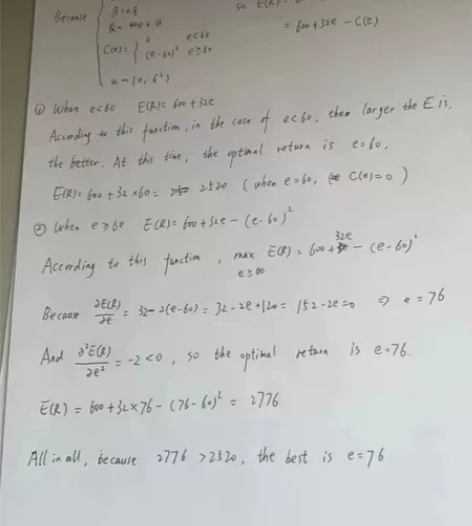 so E(R)=
Because { β=αθ
Q = 40e + u
= 600 + 32e - C(e)
C(e) = { 0 e<60
(e-60)² e≥60
① When e<60 E(R)= 600+32e
According to this function, in the case of e<60, the larger the E is,
the better. At this time, the optimal return is e=60,
E(R)= 600 + 32×60 = 2520 (when e=60, C(e)=0)
② When e≥60 E(R)= 600+32e-(e-60)²
According to this function, max E(R) = 600+32e - (e-60)²
e≥60
Because ∂E(R)/∂e = 32-2(e-60) = 32-2e+120 = 152-2e=0 ⇒ e=76
And ∂²E(R)/∂e² = -2 <0, so the optimal return is e=76.
E(R) = 600 + 32×76 - (76-60)² = 2776
All in all, because 2776 >2520, the best is e=76